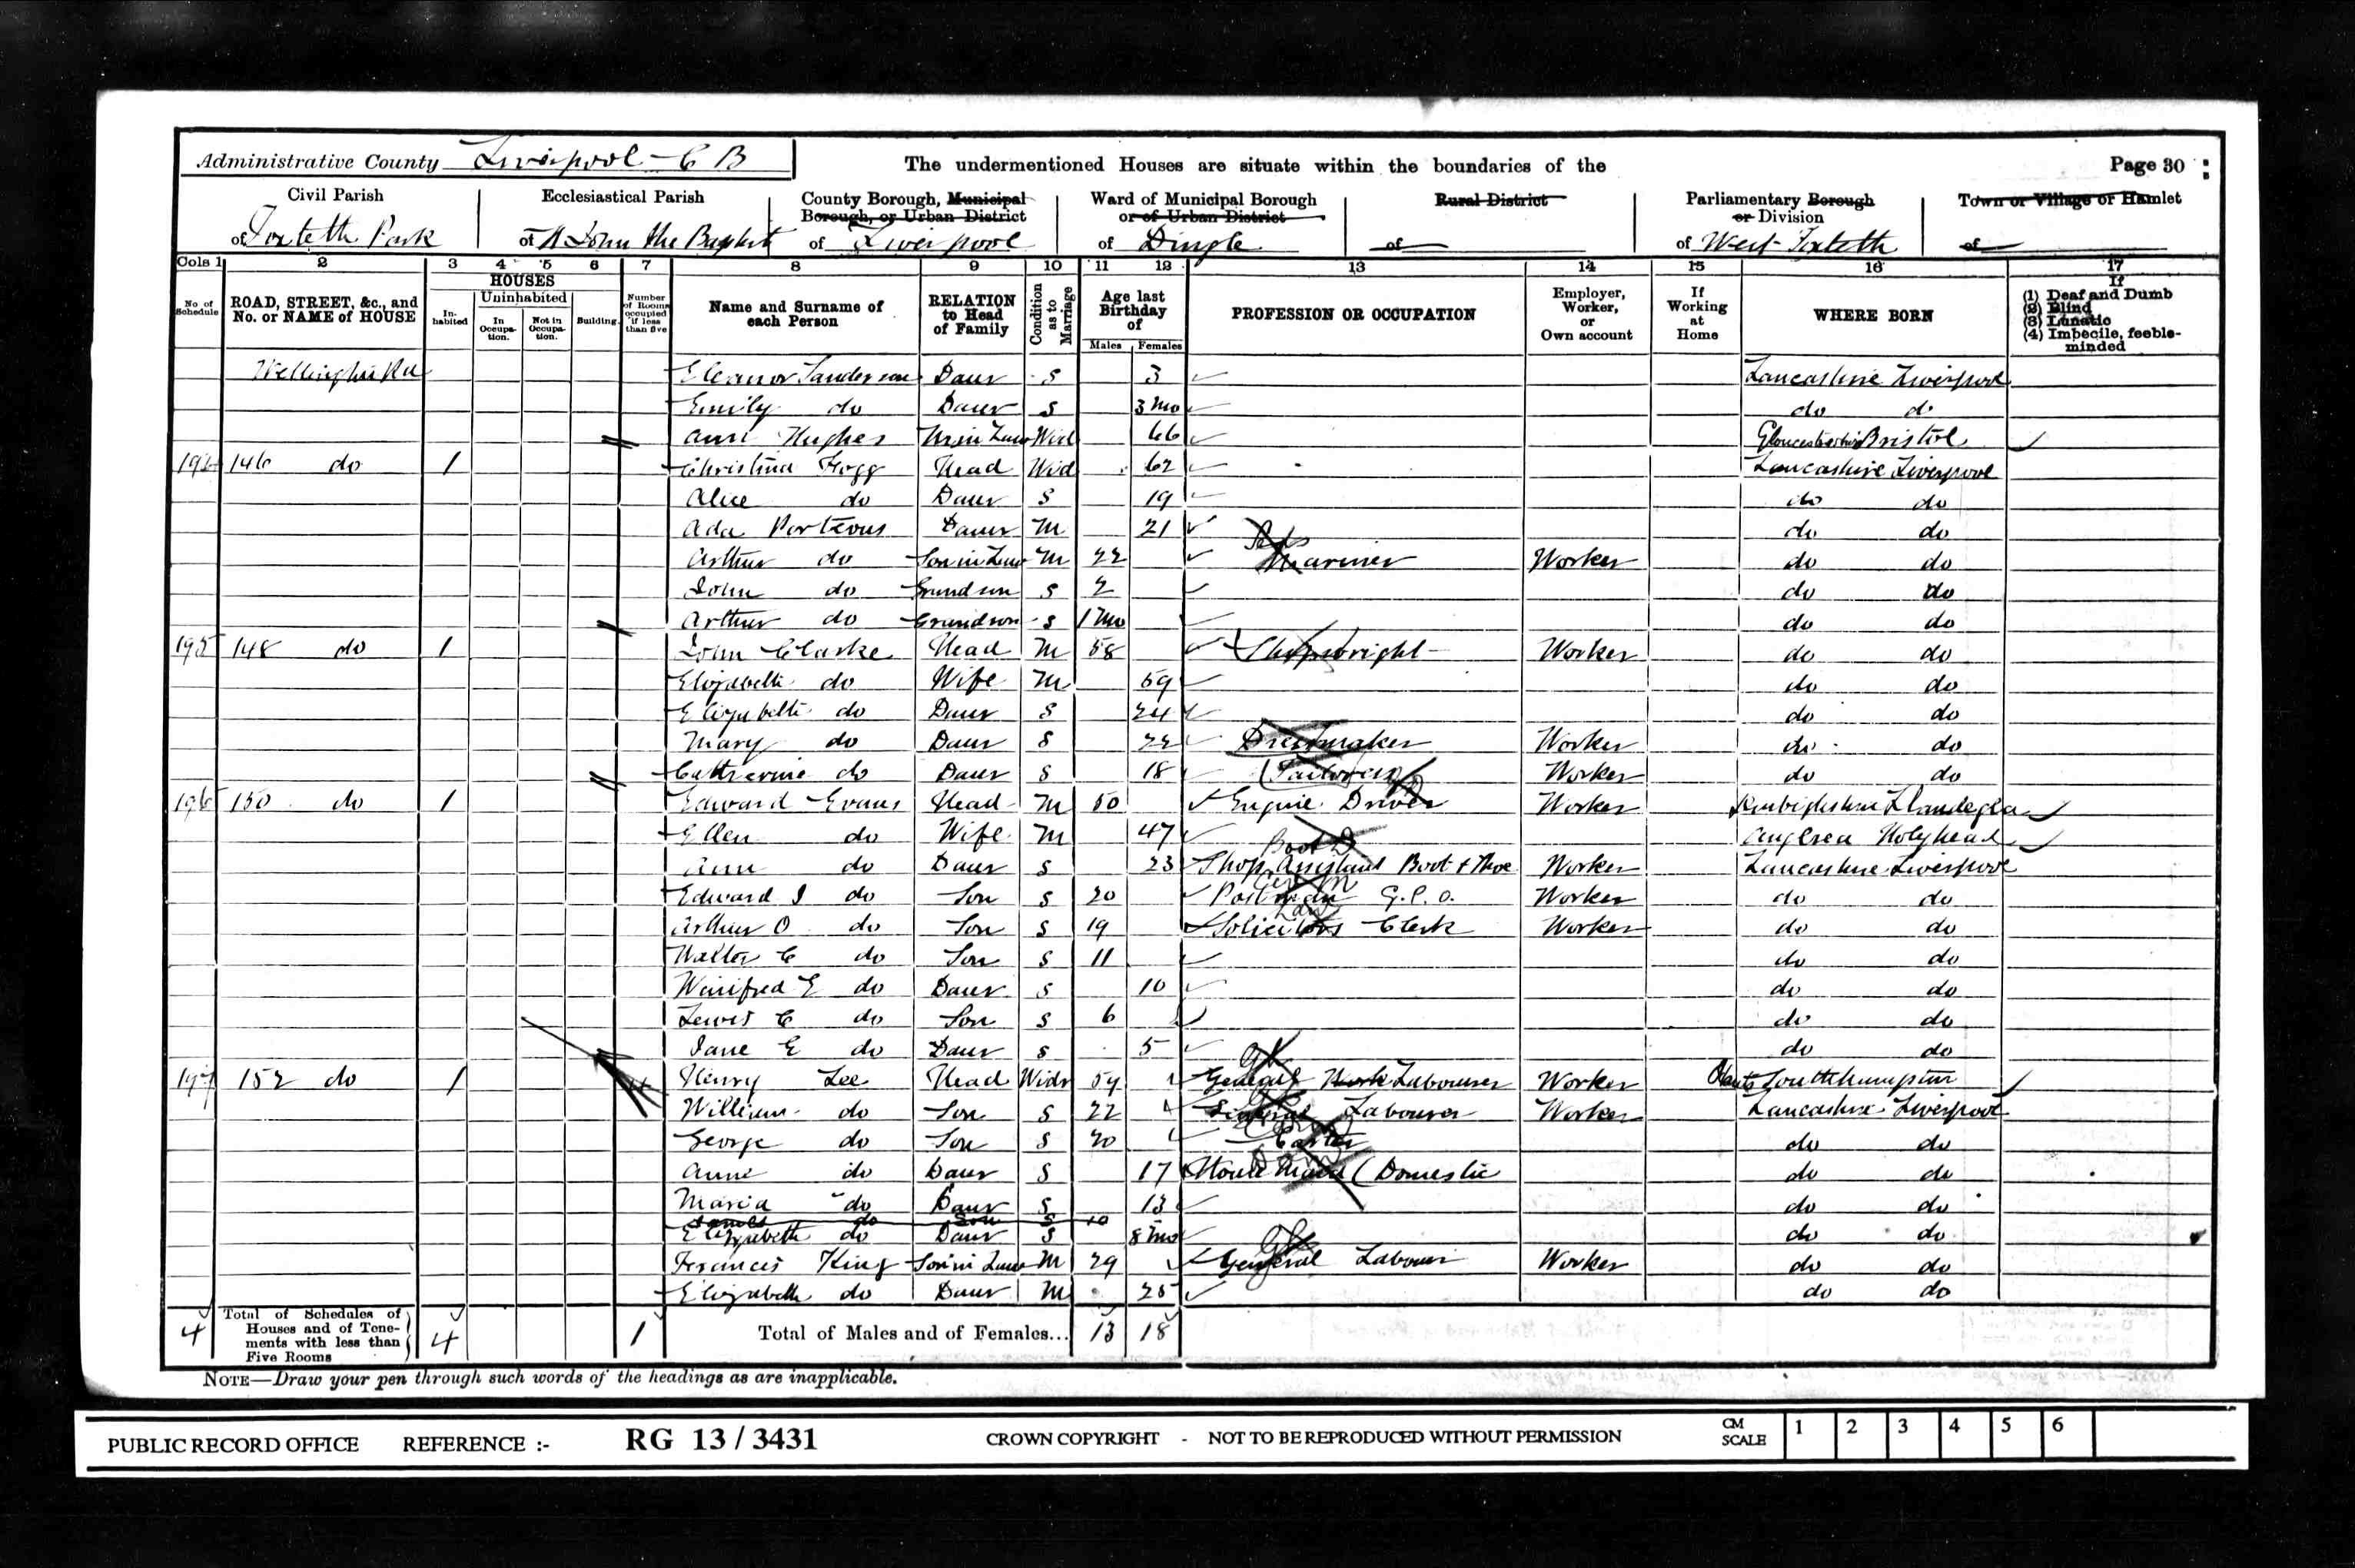 Administrative County Liverpool - C B
The undermentioned Houses are situate within the boundaries of the
Page 30
Civil Parish
of Toxteth Park
Ecclesiastical Parish
of St John the Baptist
County Borough, Municipal
Borough, or Urban District
of Liverpool
Ward of Municipal Borough
or of Urban District
of Dingle
Rural District
of
Parliamentary Borough
or Division
of West Toxteth
Town or Village or Hamlet
of
Cols 1 2 3 4 5 6 7 8 9 10 11 12 13 14 15 16 17
No of Schedule
ROAD, STREET, &c., and No. or NAME of HOUSE
HOUSES
In-habited
Uninhabited
In Occupa-tion.
Not in Occupa-tion.
Building.
Number of Rooms occupied if less than five
Name and Surname of each Person
RELATION to Head of Family
Condition as to Marriage
Age last Birthday of
Males Females
PROFESSION OR OCCUPATION
Employer, Worker, or Own account
If Working at Home
WHERE BORN
If
(1) Deaf and Dumb
(2) Blind
(3) Lunatic
(4) Imbecile, feeble-minded
Wellington Rd Eleanor Sanderson Daur S 3 Lancashire Liverpool
Emily do Daur S 3 mo do do
Ann Hughes Wid 66 Gloucestershire Bristol
194 146 do 1 Christina Fogg Head Wid 62 Lancashire Liverpool
Alice do Daur S 19 do do
Ada Porteous Daur M 21 do do
Arthur do Son in Law M 22 Mariner Worker do do
John do Grandson S 2 do do
Arthur do Grandson S 1 mo do do
195 148 do 1 John Clarke Head M 58 Shipwright Worker do do
Elizabeth do Wife M 59 do do
Elizabeth do Daur S 24 do do
Mary do Daur S 22 Dressmaker Worker do do
Catherine do Daur S 18 Tailoress Worker do do
196 150 do 1 Edward Evans Head M 50 Engine Driver Worker Denbighshire Llandegla
Ellen do Wife M 47 Anglsea Holyhead
Ann do Daur S 23 Shop Assistant Boot & Shoe Worker Lancashire Liverpool
Edward J do Son S 20 Postman G.P.O. Worker do do
Arthur O do Son S 19 Solicitors Clerk Worker do do
Walter C do Son S 11 do do
Winifred E do Daur S 10 do do
Lewis C do Son S 6 do do
Jane E do Daur S 5 do do
197 152 do 1 4 Henry Lee Head Widr 59 General Work Labourer Worker Hants Southhampton
William do Son S 22 General Labourer Worker Lancashire Liverpool
George do Son S 20 Carter do do
Anne do Daur S 17 House Maid (Domestic do do
Maria do Daur S 13 do do
James do Son S 10
Elizabeth do Daur S 8 mo do do
Frances King Son in Law M 29 General Labour Worker do do
Elizabeth do Daur M 25 do do
4 Total of Schedules of Houses and of Tene-ments with less than Five Rooms 4 1 Total of Males and of Females... 13 18
NOTE—Draw your pen through such words of the headings as are inapplicable.
PUBLIC RECORD OFFICE REFERENCE :- RG 13 / 3431 CROWN COPYRIGHT - NOT TO BE REPRODUCED WITHOUT PERMISSION CM SCALE 1 2 3 4 5 6